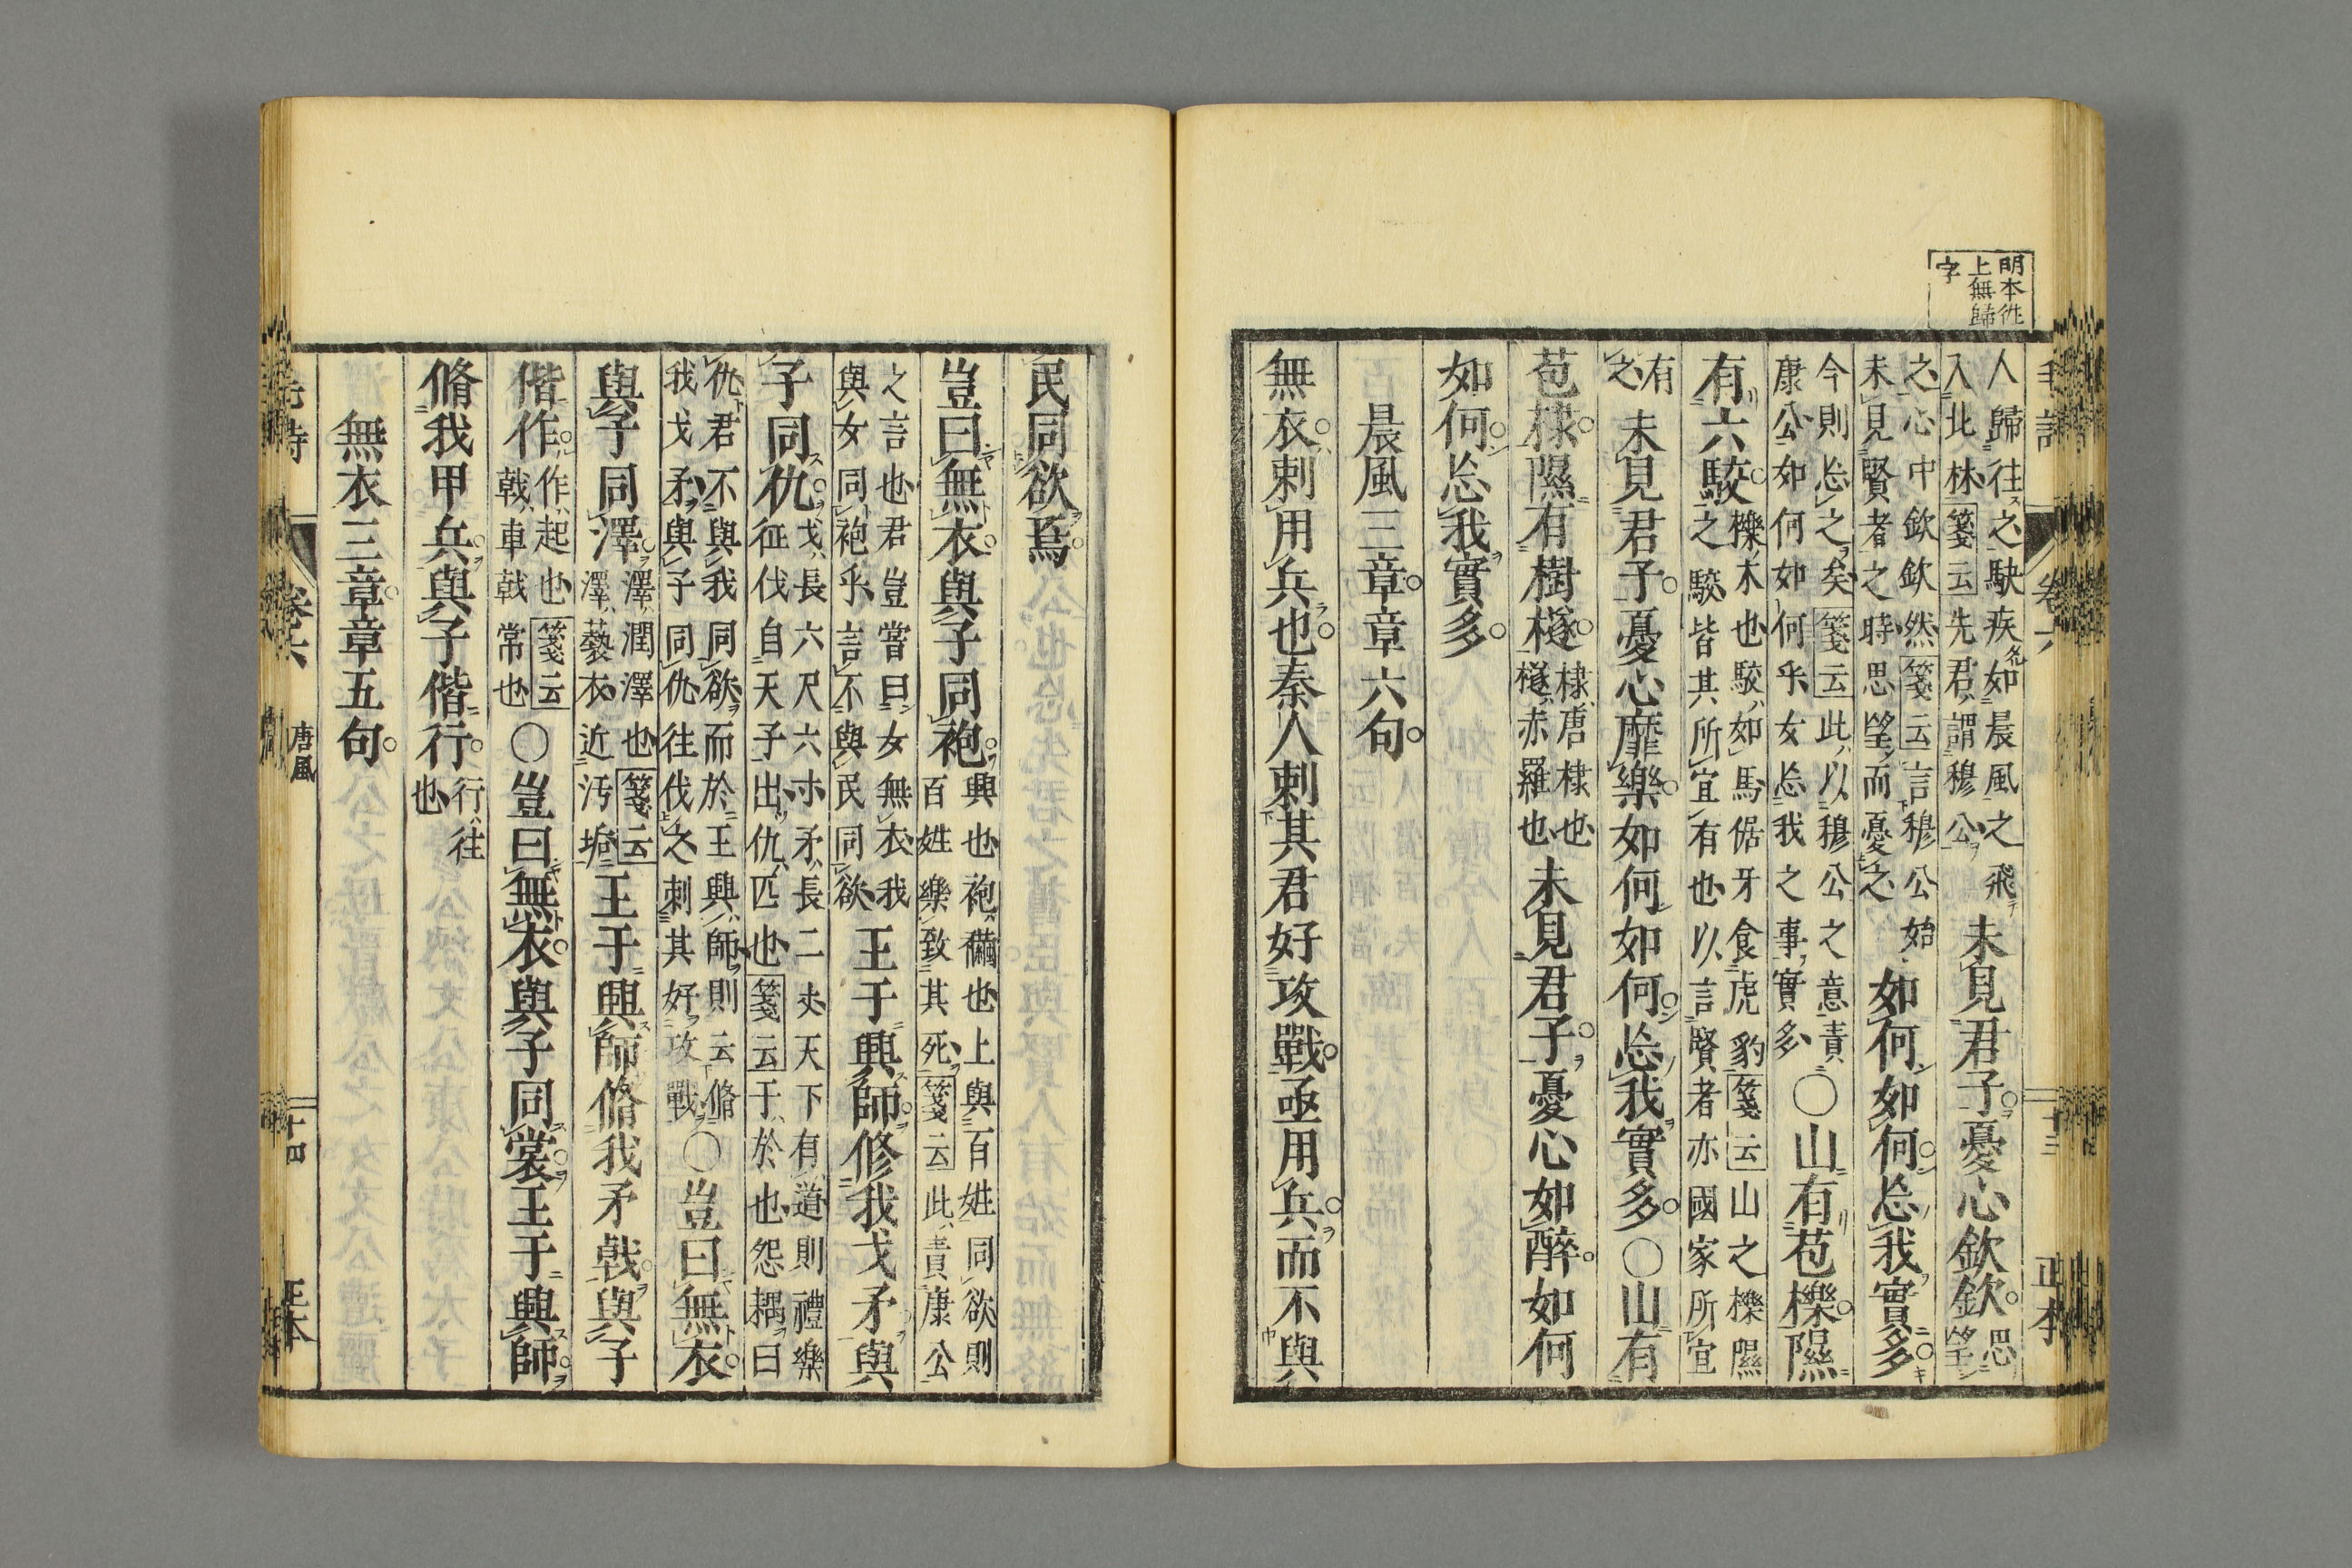 明本徃
上無歸
字
人歸往之駃疾如晨風之飛
入北林箋云先君謂穆公
未見君子憂心欽欽
思
望
之心中欽欽然箋云言穆公始
未見賢者之時思望而憂之
如何如何忘我實多
今則忘之矣箋云此以穆公之意責
康公如何如何乎女忘我之事實多
○山有苞櫟隰
有六駮
櫟木也駮如馬倨牙食虎豹箋云山之櫟隰
之駮皆其所宜有也以言賢者亦國家所宜
有
之
未見君子憂心靡樂如何如何忘我實多○山有
苞棣隰有樹檖
棣唐棣也
檖赤羅也
未見君子憂心如醉如何
如何忘我實多
晨風三章章六句
無衣刺用兵也秦人刺其君好攻戰亟用兵而不與
民同欲焉
豈曰無衣與子同袍
興也袍襺也上與百姓同欲則
百姓樂致其死箋云此責康公
之言也君豈嘗曰女無衣我
與女同袍乎言不與民同欲
王于興師修我戈矛與
子同仇
戈長六尺六寸矛長二丈天下有道則禮樂
征伐自天子出仇匹也箋云于於也怨耦曰
仇君不與我同欲而於王興師則云脩
我戈矛與子同仇往伐之刺其好攻戰
○豈曰無衣
與子同澤
澤潤澤也箋云
澤褻衣近汚垢
王于興師脩我矛戟與子
偕作
作起也箋云
戟車戟常也
○豈曰無衣與子同裳王于興師
脩我甲兵與子偕行
行往
也
無衣三章章五句
卷六
唐風
十四